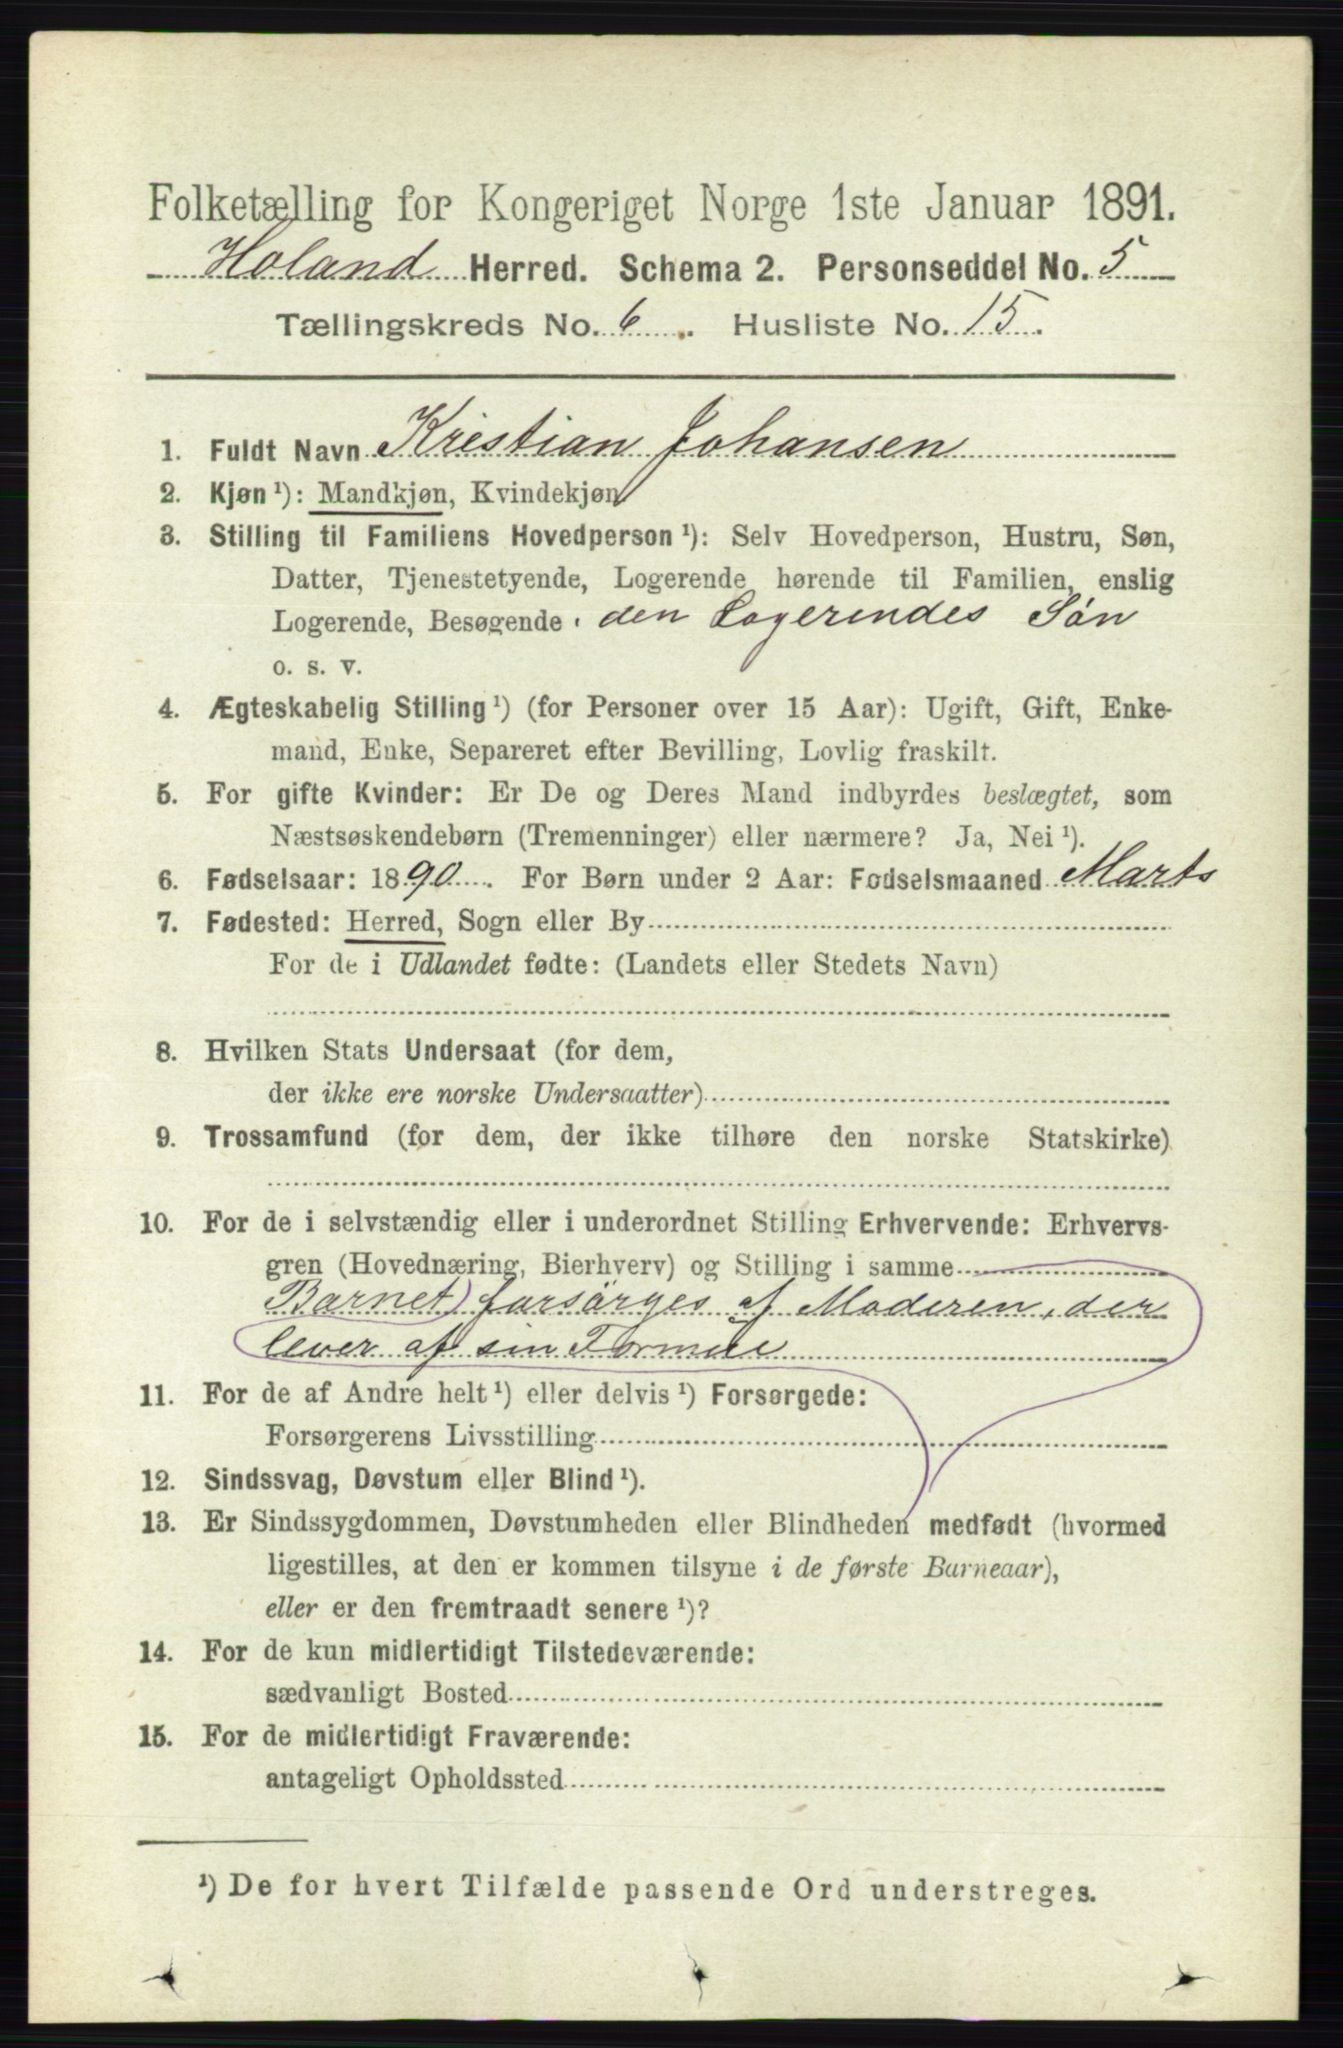 Folketælling for Kongeriget Norge 1ste Januar 1891.
Holand Herred. Schema 2. Personseddel No. 5
Tællingskreds No. 6. Husliste No. 15.
1. Fuldt Navn Kristian Johansen
2. Kjøn ¹): Mandkjøn, Kvindekjøn
3. Stilling til Familiens Hovedperson ¹): Selv Hovedperson, Hustru, Søn,
Datter, Tjenestetyende, Logerende hørende til Familien, enslig
Logerende, Besøgende den Logerendes Søn
o. s. v.
4. Ægteskabelig Stilling ¹) (for Personer over 15 Aar): Ugift, Gift, Enke-
mand, Enke, Separeret efter Bevilling, Lovlig fraskilt.
5. For gifte Kvinder: Er De og Deres Mand indbyrdes beslægtet, som
Næstsøskendebørn (Tremenninger) eller nærmere? Ja, Nei ¹).
6. Fødselsaar: 1890. For Børn under 2 Aar: Fødselsmaaned Marts
7. Fødested: Herred, Sogn eller By
For de i Udlandet fødte: (Landets eller Stedets Navn)
8. Hvilken Stats Undersaat (for dem,
der ikke ere norske Undersaatter)
9. Trossamfund (for dem, der ikke tilhøre den norske Statskirke)
10. For de i selvstændig eller i underordnet Stilling Erhvervende: Erhvervs-
gren (Hovednæring, Bierhverv) og Stilling i samme
Barnet) forsørges af Moderen, der
lever af sin Formue
11. For de af Andre helt ¹) eller delvis ¹) Forsørgede:
Forsørgerens Livsstilling
12. Sindssvag, Døvstum eller Blind ¹).
13. Er Sindssygdommen, Døvstumheden eller Blindheden medfødt (hvormed
ligestilles, at den er kommen tilsyne i de første Barneaar),
eller er den fremtraadt senere ¹)?
14. For de kun midlertidigt Tilstedeværende:
sædvanligt Bosted
15. For de midlertidigt Fraværende:
antageligt Opholdssted
¹) De for hvert Tilfælde passende Ord understreges.